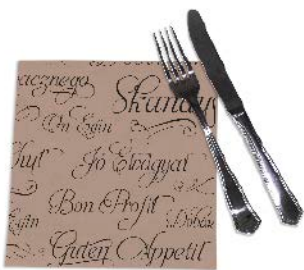 acznego
Skandus
On Egin
Jó Étvágyat
Bon Profit
Egin
Dobou
Guten Appetit